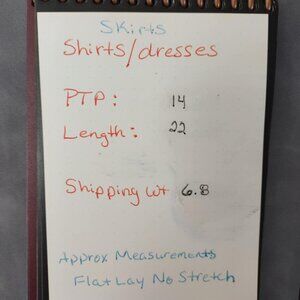 Skirts
Shirts/dresses
PTP: 14
Length: 22
Shipping wt 6.8
Approx Measurements
Flat Lay No Stretch